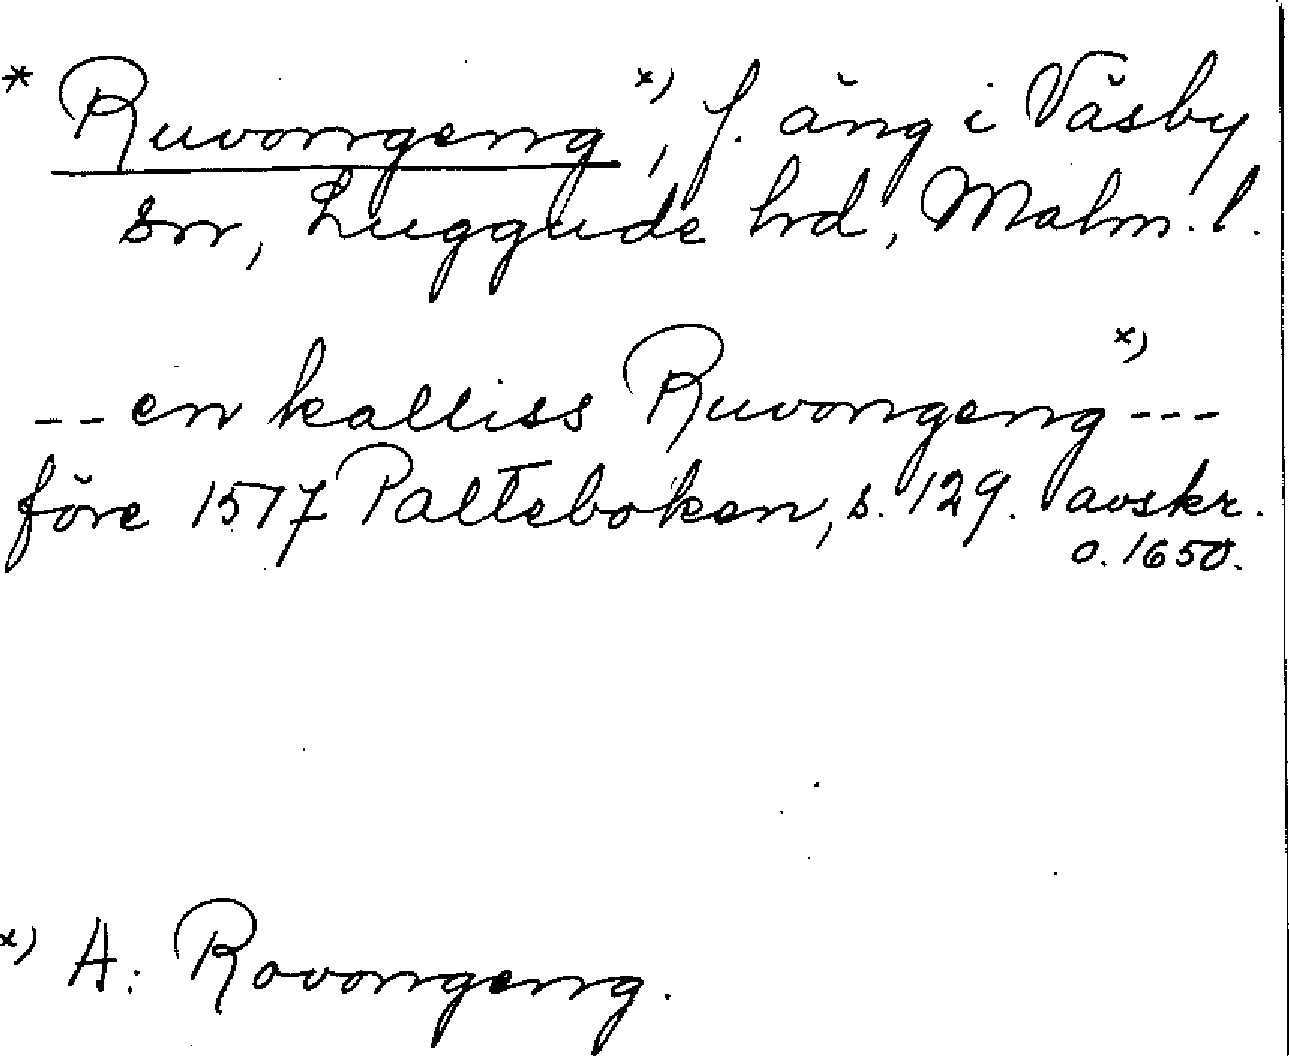 * Ruvongeng x), f. äng i Väsby
sn, Luggude hd, Malm. l.
-- en kalliss Ruvongeng x) ---
före 1517 Palteboken, s. 129. avskr.
o. 1650.
x) A: Rovongeng.